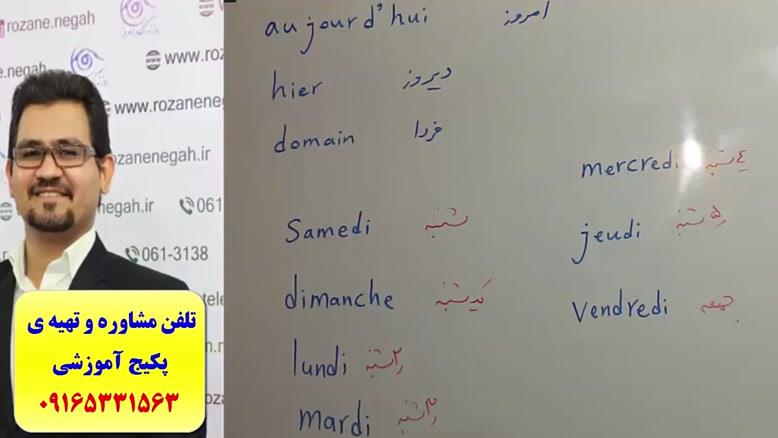 rozane.negah
www.ro
e.negah
www.rozanenega
ozanenegah.ir
negah.ir
061
061-3138
تلفن مشاوره و تهیه ی
پکیج آموزشی
۰۹۱۶۵۳۳۱۵۶۳
aujourd'hui امروز
hier دیروز
domain فردا
Samedi شنبه
dimanche یکشنبه
lundi ۲شنبه
mardi ۳شنبه
mercredi ٤شنبه
jeudi ۵شنبه
Vendredi جمعه